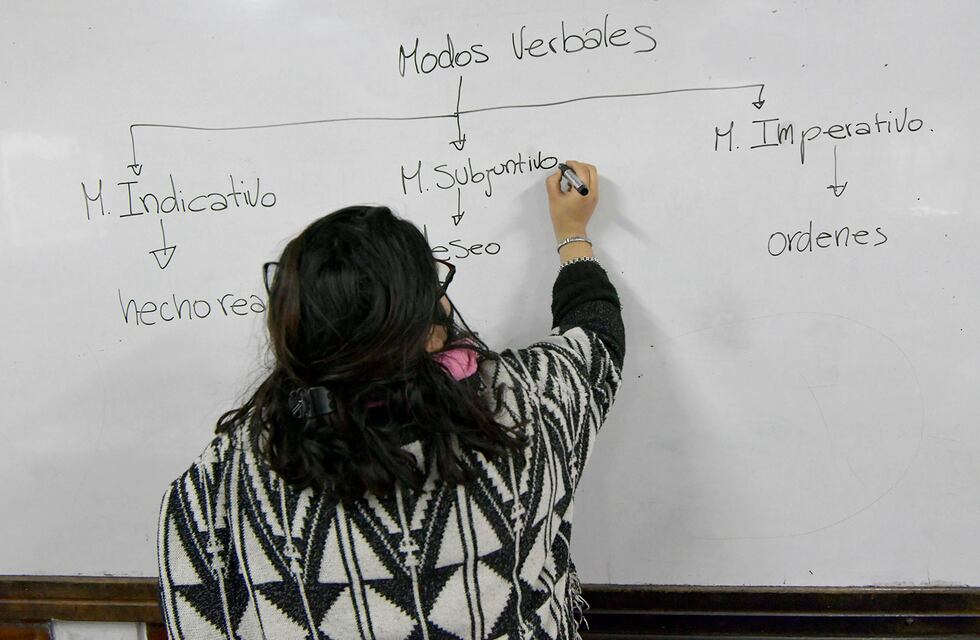 Modos Verbales
M. Indicativo
M. Subjuntivo
M. Imperativo.
deseo
ordenes
hecho rea